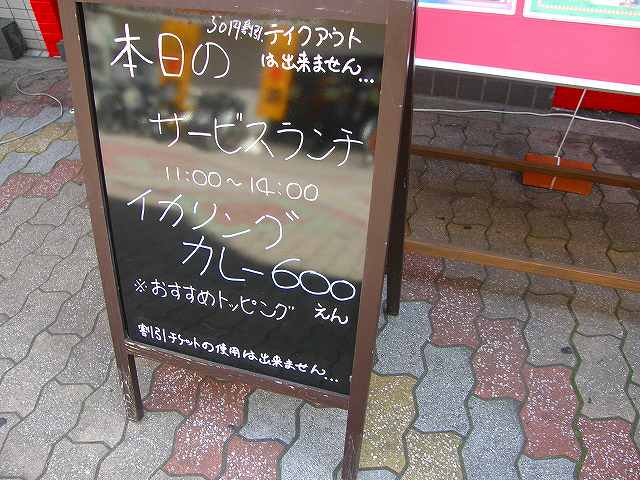 50円割引、テイクアウト
は出来ません...
本日の
サービスランチ
11:00～14:00
イカリング
カレー600
えん
※おすすめトッピング
割引チケットの使用は出来ません...